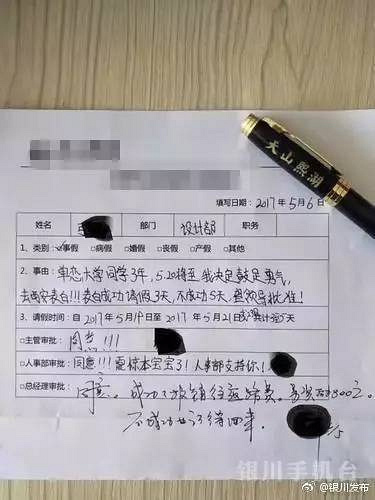 填写日期:2017年5月6日
姓名 部门 设计部 职务
1、类别:☑事假 □病假 □婚假 □丧假 □产假 □其他
2、事由:单恋大学同学3年,5.20将至我决定鼓足勇气,
去西安表白!!!表白成功请假3天,不成功5天,望领导批准!
3、请假时间:自2017年5月17日至2017年5月21日 共计 5天
□主管审批: 同意!!!
□人事部审批:同意!!!震惊本宝宝了!人事部支持你!
□总经理审批: 同意。成功了报销往返路费。另奖励800元。
不成功
天山熙湖
银川手机台
@银川发布